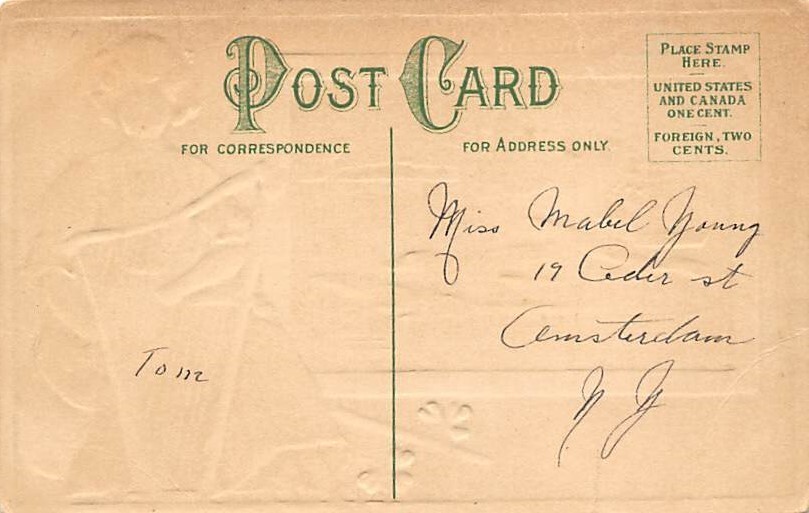 POST CARD
FOR CORRESPONDENCE
FOR ADDRESS ONLY.
PLACE STAMP
HERE.
UNITED STATES
AND CANADA
ONE CENT.
FOREIGN, TWO
CENTS.
Miss Mabel Young
19 Ceder st
Amsterdam
N Y
Tom